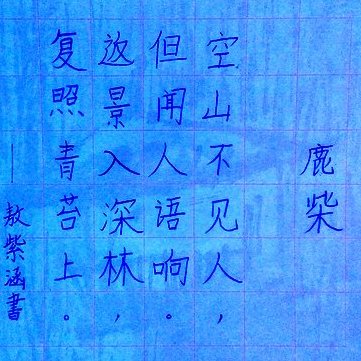 鹿柴
空山不见人，
但闻人语响。
返景入深林，
复照青苔上。
—敖紫涵書